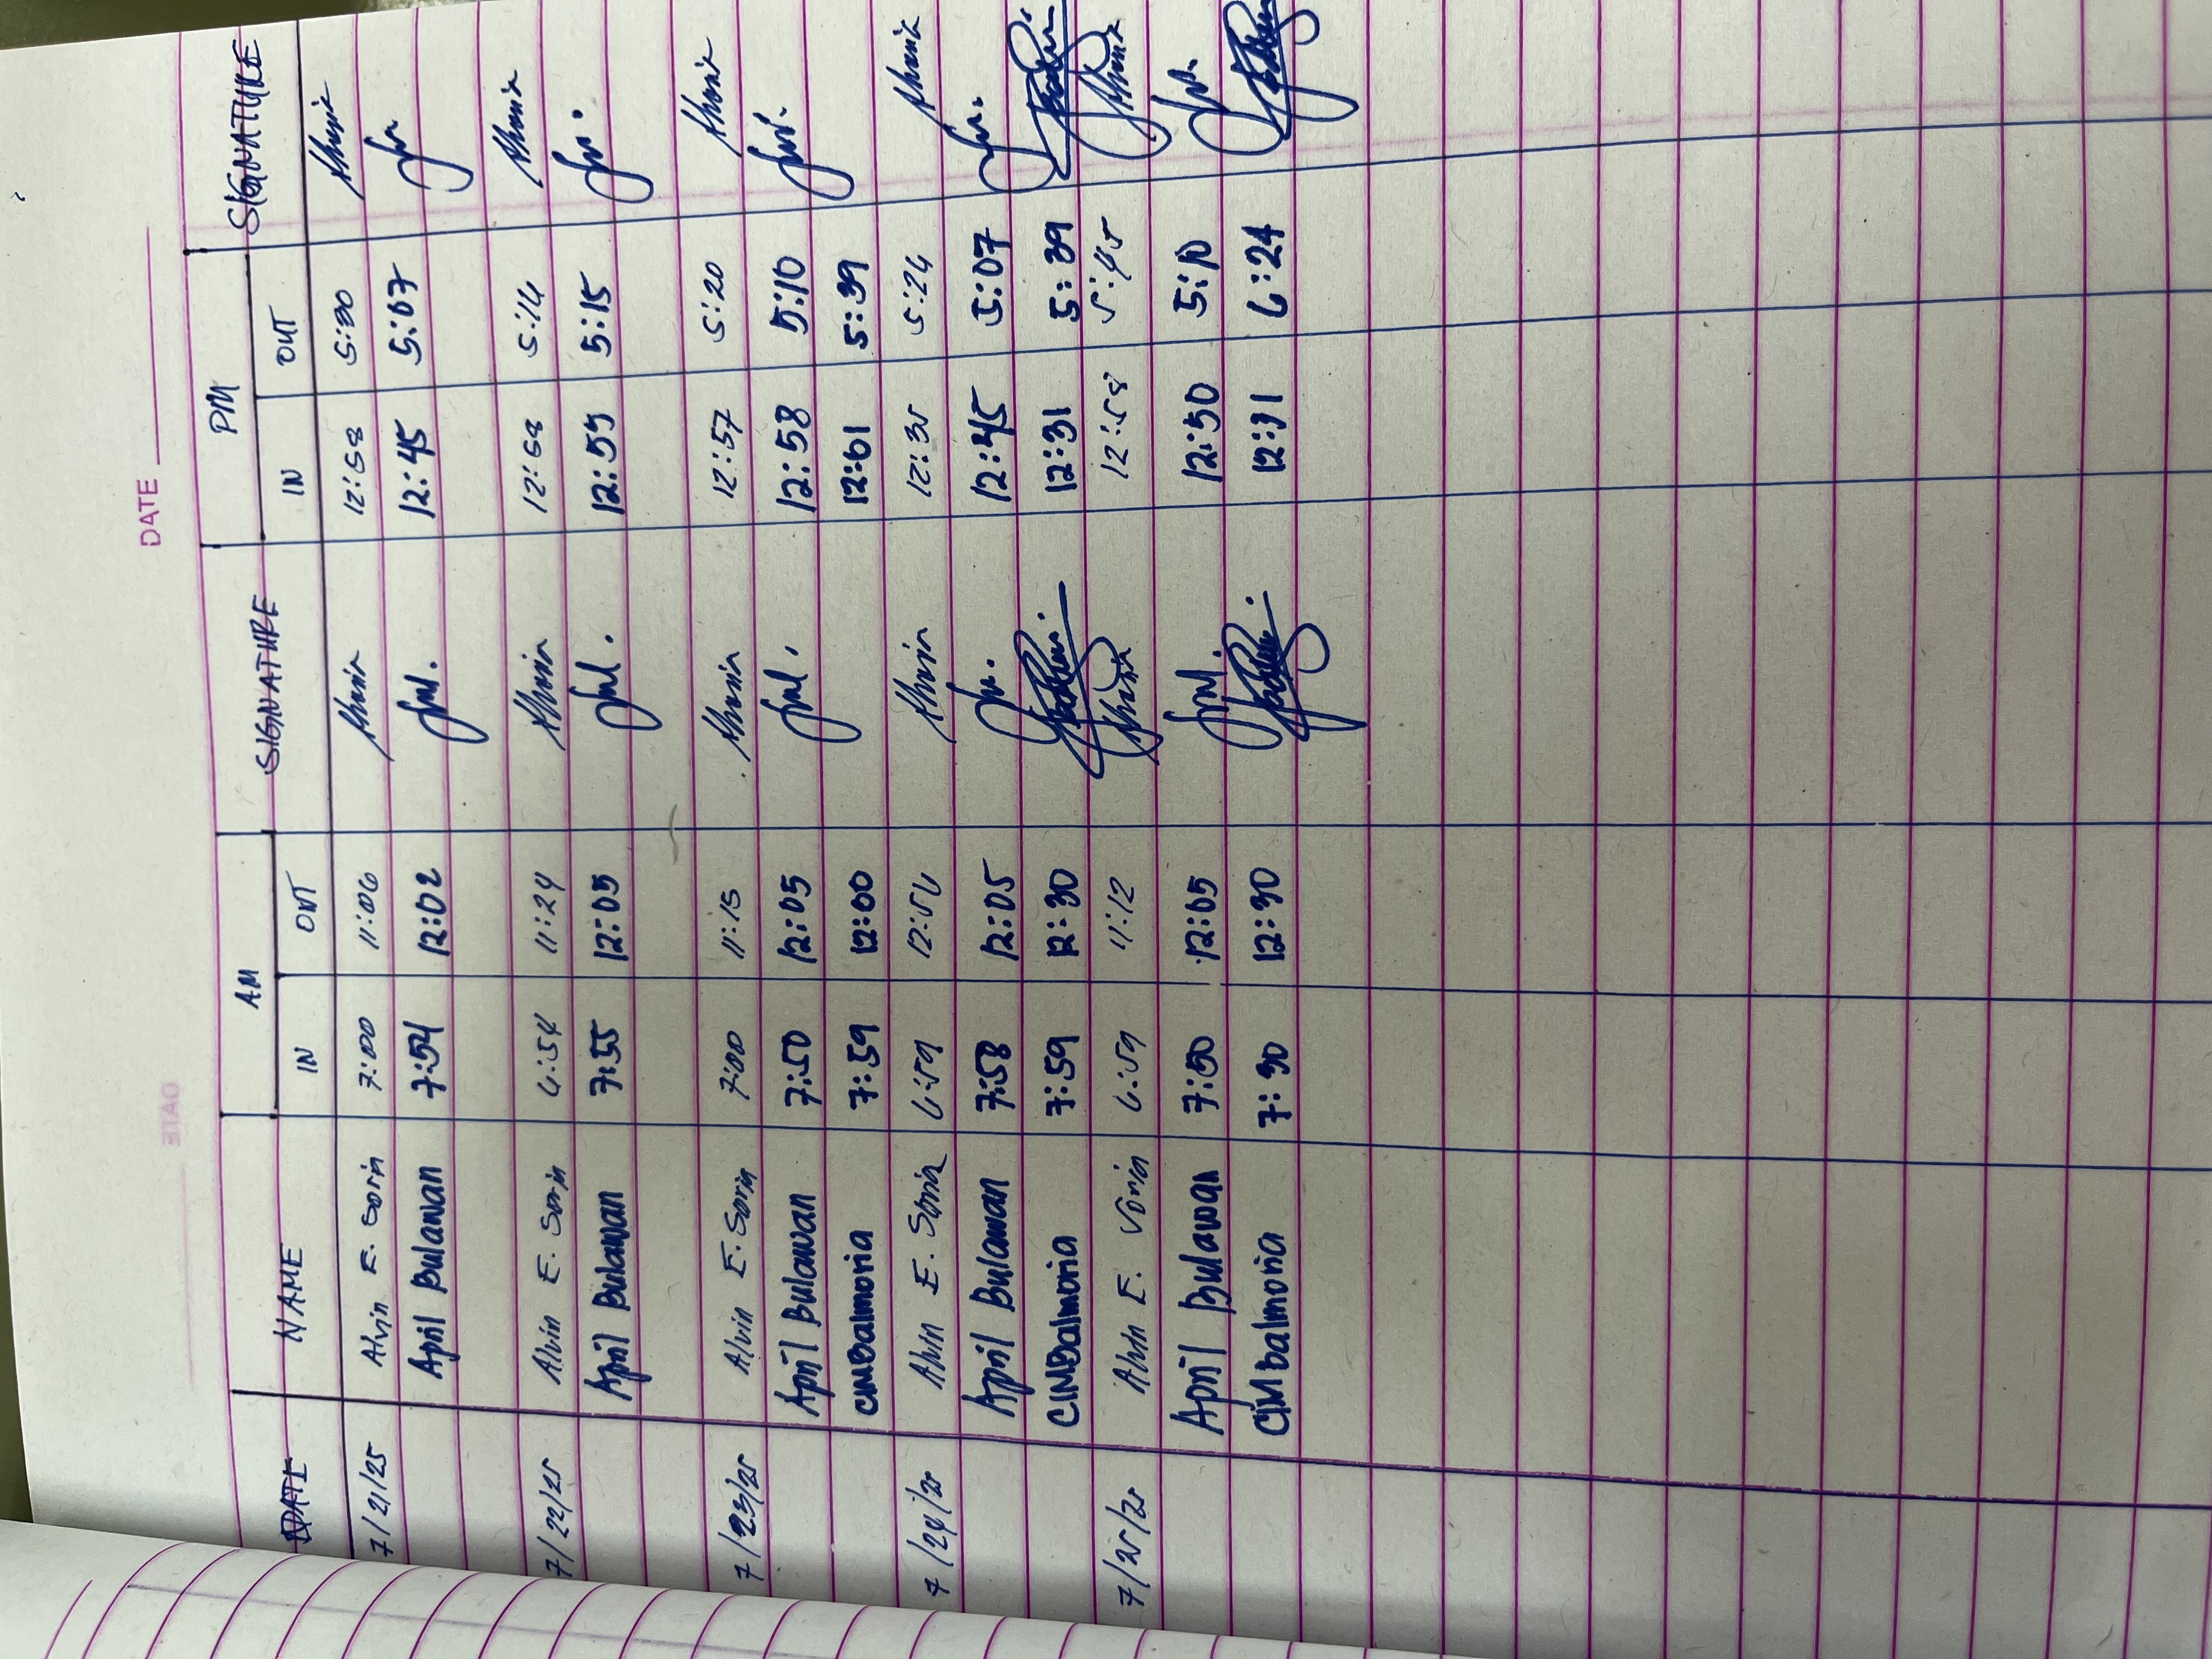 DATE
DATE NAME AM SIGNATURE PM SIGNATURE
IN OUT IN OUT
7/21/25 Alvin E. Soria 7:00 11:06 12:58 5:30
April Bulawan 7:54 12:02 12:45 5:07
7/22/25 Alvin E. Soria 6:54 11:24 12:58 5:16
April Bulawan 7:55 12:05 12:59 5:15
7/23/25 Alvin E. Soria 7:00 11:15 12:57 5:20
April Bulawan 7:50 12:05 12:58 5:10
CINBalmoria 7:59 12:00 12:01 5:39
7/24/25 Alvin E. Soria 6:59 12:56 12:35 5:26
April Bulawan 7:58 12:05 12:45 5:07
CINBalmoria 7:59 12:30 12:31 5:39
7/25/25 Alvin E. Soria 6:59 11:12 12:58 5:45
April Bulawan 7:50 12:05 12:50 5:10
CIMbalmoria 7:30 12:30 12:31 6:24